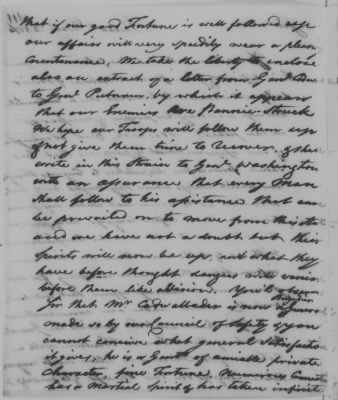 that if our good Fortune is well followed up
our affairs will very speedily wear a plea
Countenance, We take the liberty to inclose
also an extract of a letter from Genl
to Genl Putnam, by which it appears
that our Enemies are Pannic Struck
We hope our Troops will follow them up
& not give them time to recover,
write in this Strain to Genl Washington
with an assurance that every Man
shall follow to his assistance that can
be prevailed on to move from this
and we have not a doubt but their
spirits will now be up, and what they
have before thought dangers will vanish
before them like a Vision. You'll
for that Mr Cadwallader is now
made so by our Council of Safety & you
cannot conceive what general Satisfacti
it gives, he is a Gentn of amiable private
Character, fine Fortune, Numerous Connect
has a Martial Spirit & has taken infinit